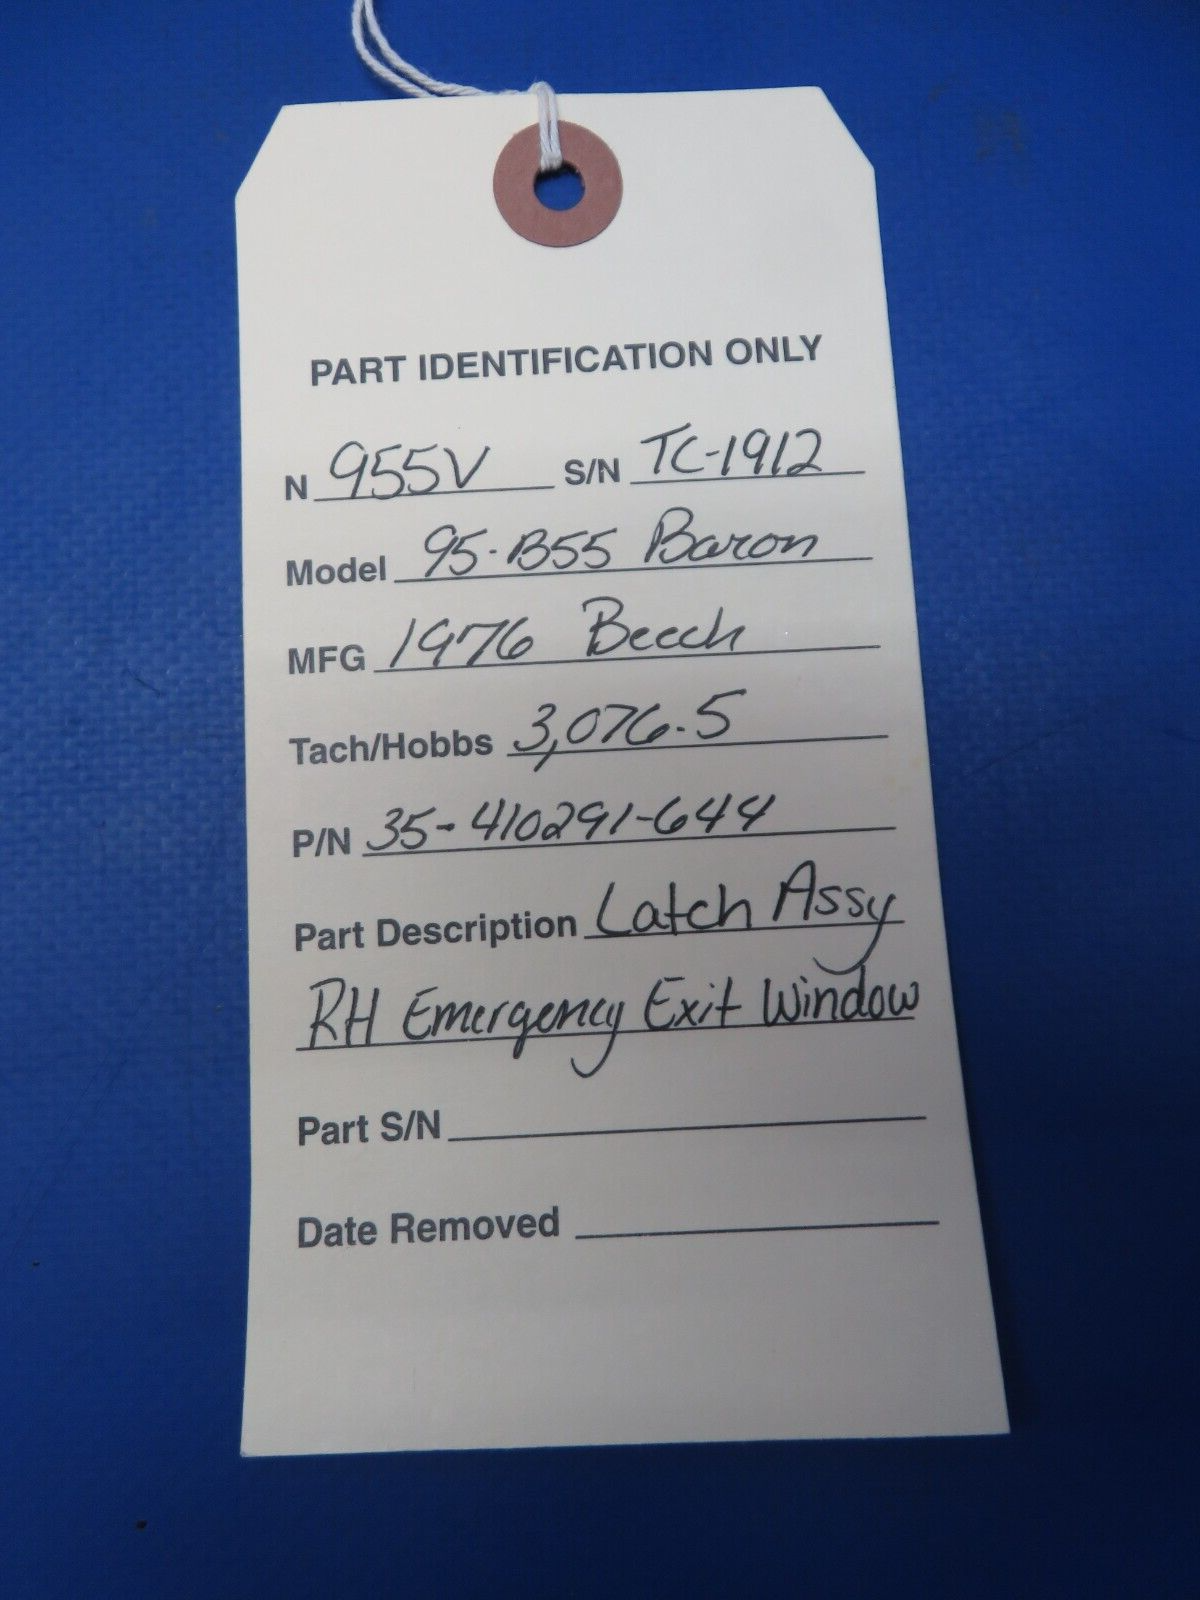 PART IDENTIFICATION ONLY
N 955V S/N TC-1912
Model 95-B55 Baron
MFG 1976 Beech
Tach/Hobbs 3,076.5
P/N 35-410291-644
Part Description Latch Assy
RH Emergency Exit Window
Part S/N
Date Removed